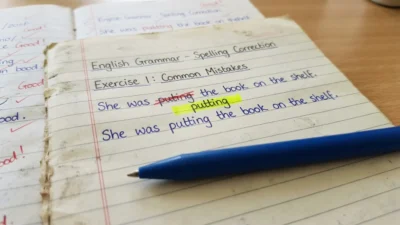 English Grammar - Spelling Correction
Exercise 1: Common Mistakes
She was puting the book on the shelf.
putting
She was putting the book on the shelf.
She was putting the book on the shelf
Good!
Good!
Good!